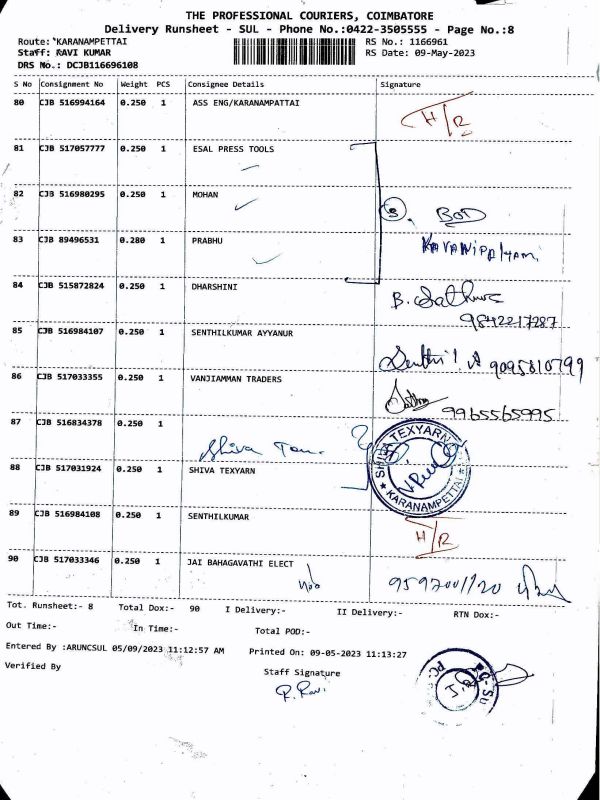 THE PROFESSIONAL COURIERS, COIMBATORE
Delivery Runsheet - SUL - Phone No.:0422-3505555 - Page No.:8
Route: KARANAMPETTAI RS No.: 1166961
Staff: RAVI KUMAR RS Date: 09-May-2023
DRS No.: DCJB116696108
S No Consignment No Weight PCS Consignee Details Signature
80 CJB 516994164 0.250 1 ASS ENG/KARANAMPATTAI H/R
81 CJB 517057777 0.250 1 ESAL PRESS TOOLS
82 CJB 516980295 0.250 1 MOHAN
83 CJB 89496531 0.280 1 PRABHU
84 CJB 515872824 0.250 1 DHARSHINI
9842217287
85 CJB 516984107 0.250 1 SENTHILKUMAR AYYANUR
9095810799
86 CJB 517033355 0.250 1 VANJIAMMAN TRADERS
9965565995
87 CJB 516834378 0.250 1
Shiva
88 CJB 517031924 0.250 1 SHIVA TEXYARN
SHIVA TEXYARN
KARANAMPETTAI
89 CJB 516984108 0.250 1 SENTHILKUMAR H/R
90 CJB 517033346 0.250 1 JAI BAHAGAVATHI ELECT
Tot. Runsheet:- 8 Total Dox:- 90 I Delivery:- II Delivery:- RTN Dox:-
Out Time:- In Time:- Total POD:-
Entered By :ARUNCSUL 05/09/2023 11:12:57 AM Printed On: 09-05-2023 11:13:27
Verified By Staff Signature
R. Ravi